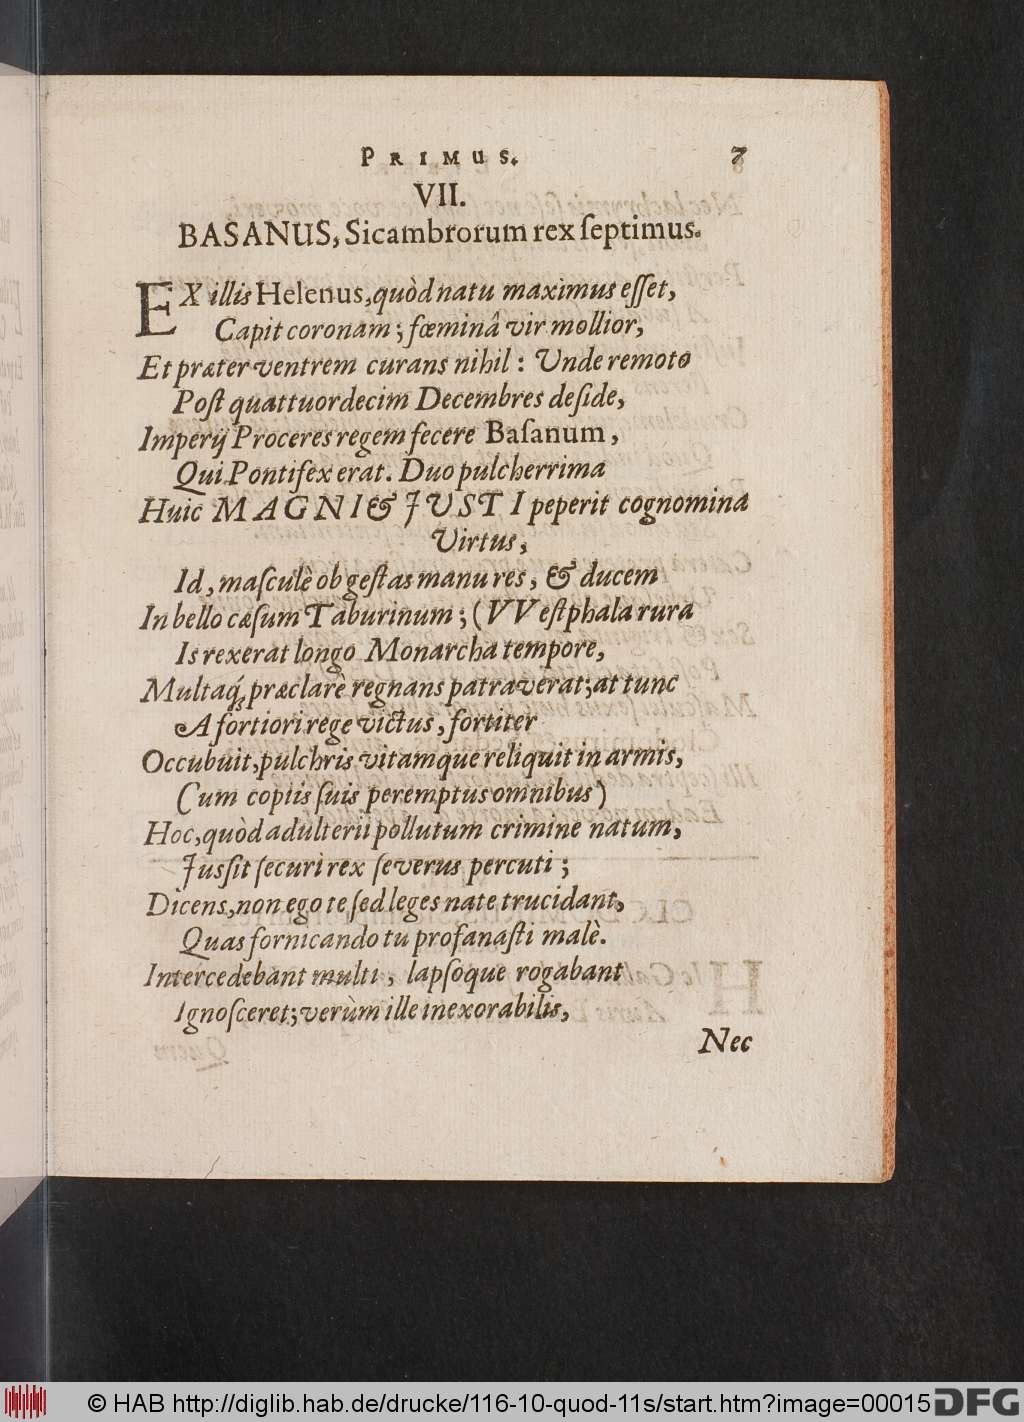 PRIMUS. 7
VII.
BASANUS, Sicambrorum rex ſeptimus.
EX illis Helenus, quòd natu maximus eſſet,
Capit coronam; fœminâ vir mollior,
Et præter ventrem curans nihil: Unde remoto
Poſt quattuordecim Decembres deſide,
Imperij Proceres regem fecere Baſanum,
Qui Pontifex erat. Duo pulcherrima
Huic MAGNI & JUSTI peperit cognomina
Virtus,
Id, maſculè ob geſtas manu res, & ducem
In bello cæſum Taburinum; (VVeſtphala rura
Is rexerat longo Monarcha tempore,
Multaq́; præclarè regnans patraverat; at tunc
A fortiori rege victus, fortiter
Occubuit, pulchris vitamque reliquit in armis,
Cum copiis ſuis peremptus omnibus)
Hoc, quòd adulterii pollutum crimine natum,
Juſſit ſecuri rex ſeverus percuti;
Dicens, non ego te ſed leges nate trucidant,
Quas fornicando tu profanaſti malè.
Intercedebant multi, lapſoque rogabant
Ignoſceret; verùm ille inexorabilis,
Nec
© HAB http://diglib.hab.de/drucke/116-10-quod-11s/start.htm?image=00015 DFG